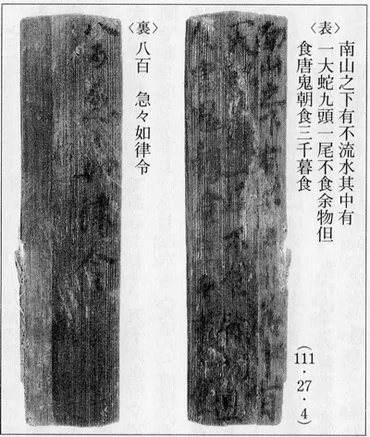 〈表〉
南山之下有不流水其中有
一大蛇九頭一尾不食余物但
食唐鬼朝食三千暮食
(111・27・4)
〈裏〉
八百　急々如律令